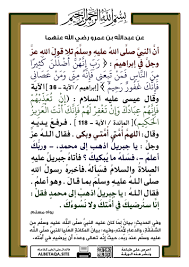 بسم الله الرحمن الرحيم
عن عبدالله بن عمرو رضي الله عنهما
أن النبي صلى الله عليه وسلم تلا قول الله عز
وجل في إبراهيم : { رب إنهن أضللن كثيرا
من الناس فمن تبعني فإنه مني ومن عصاني
فإنك غفور رحيم } [إبراهيم / الآية - 36] الآية
وقال عيسى عليه السلام : { إن تعذبهم
فإنهم عبادك وإن تغفر لهم فإنك أنت العزيز
الحكيم } [المائدة / الآية - 118] ، فرفع يديه
وقال : اللهم أمتي أمتي وبكى ، فقال الله عز
وجل : يا جبريل اذهب إلى محمد ، - وربك
أعلم - ، فسله ما يبكيك ؟ فأتاه جبريل عليه
الصلاة والسلام فسأله فأخبره رسول الله
صلى الله عليه وسلم بما قال . وهو أعلم ،
فقال الله : يا جبريل اذهب إلى محمد فقل :
إنا سنرضيك في أمتك ولا نسوءك .
رواه مسلم
ALBETAQA.SITE